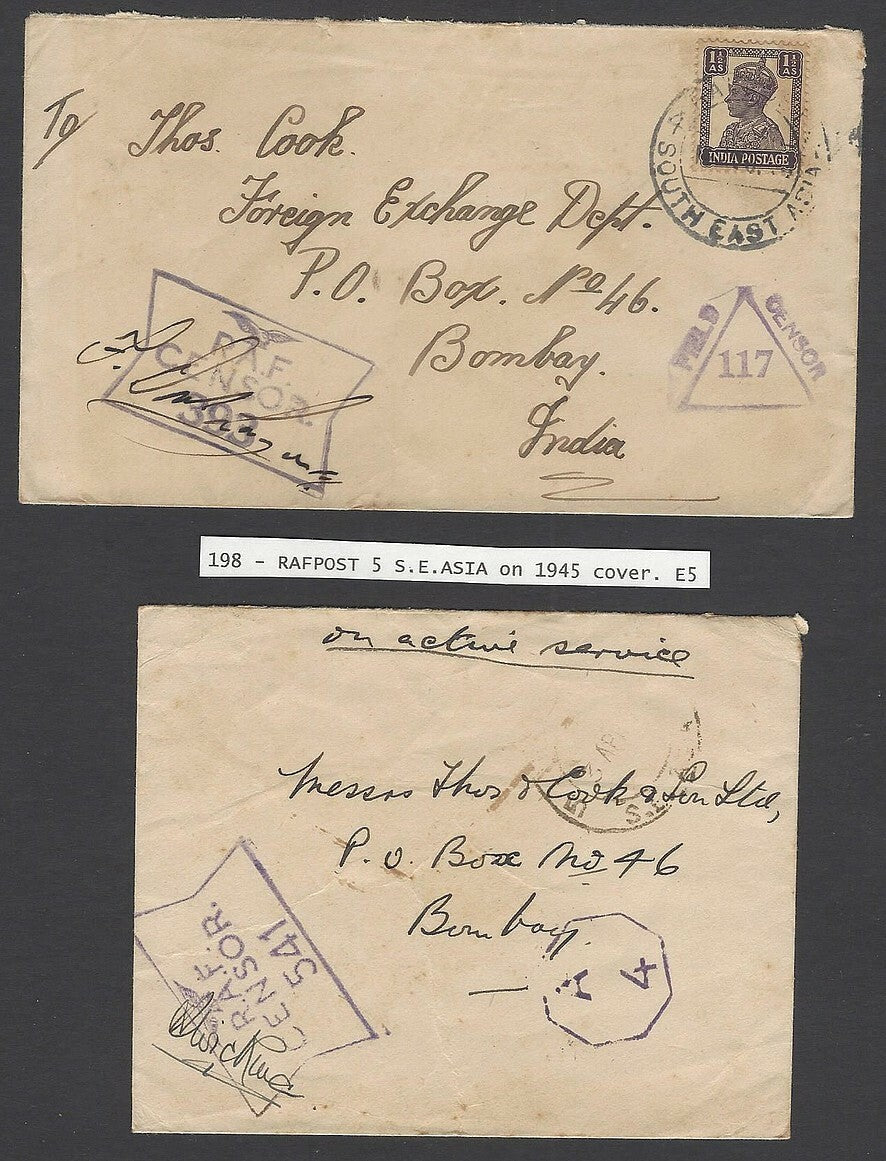 1½ AS 1½ AS
INDIA POSTAGE
SOUTH EAST ASIA
To
Thos. Cook.
Foreign Exchange Dept.
P.O. Box. No 46.
Bombay.
India
R.A.F.
CENSOR.
393
FIELD CENSOR
117
198 - RAFPOST 5 S.E.ASIA on 1945 cover. E5
on active service
Messrs Thos Cook & Son Ltd,
P.O. Box No 46
Bombay
R.A.F.
CENSOR.
541
A
4